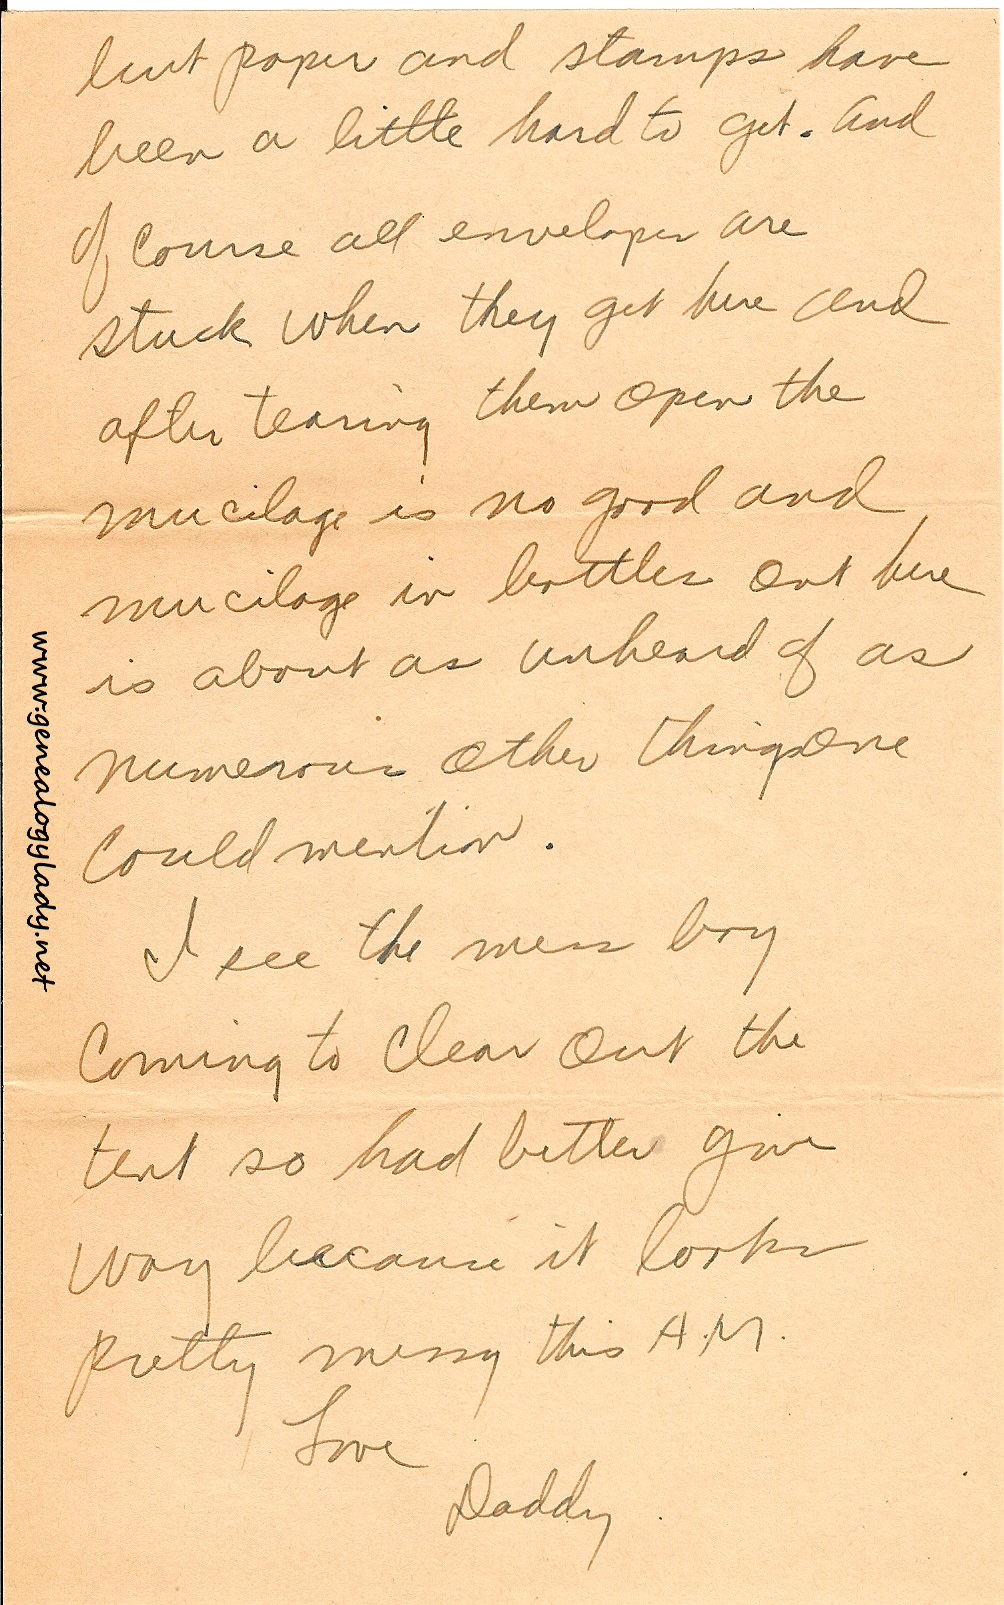 but paper and stamps have
been a little hard to get. And
of course all envelopes are
stuck when they get here and
after tearing them open the
mucilage is no good and
mucilage in bottles out here
is about as unheard of as
numerous other things one
could mention.
I see the mess boy
coming to clear out the
tent so had better give
way because it looks
pretty messy this A.M.
Love
Daddy
www.genealogylady.net